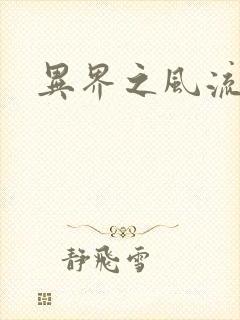 異界之風流
靜飛雪